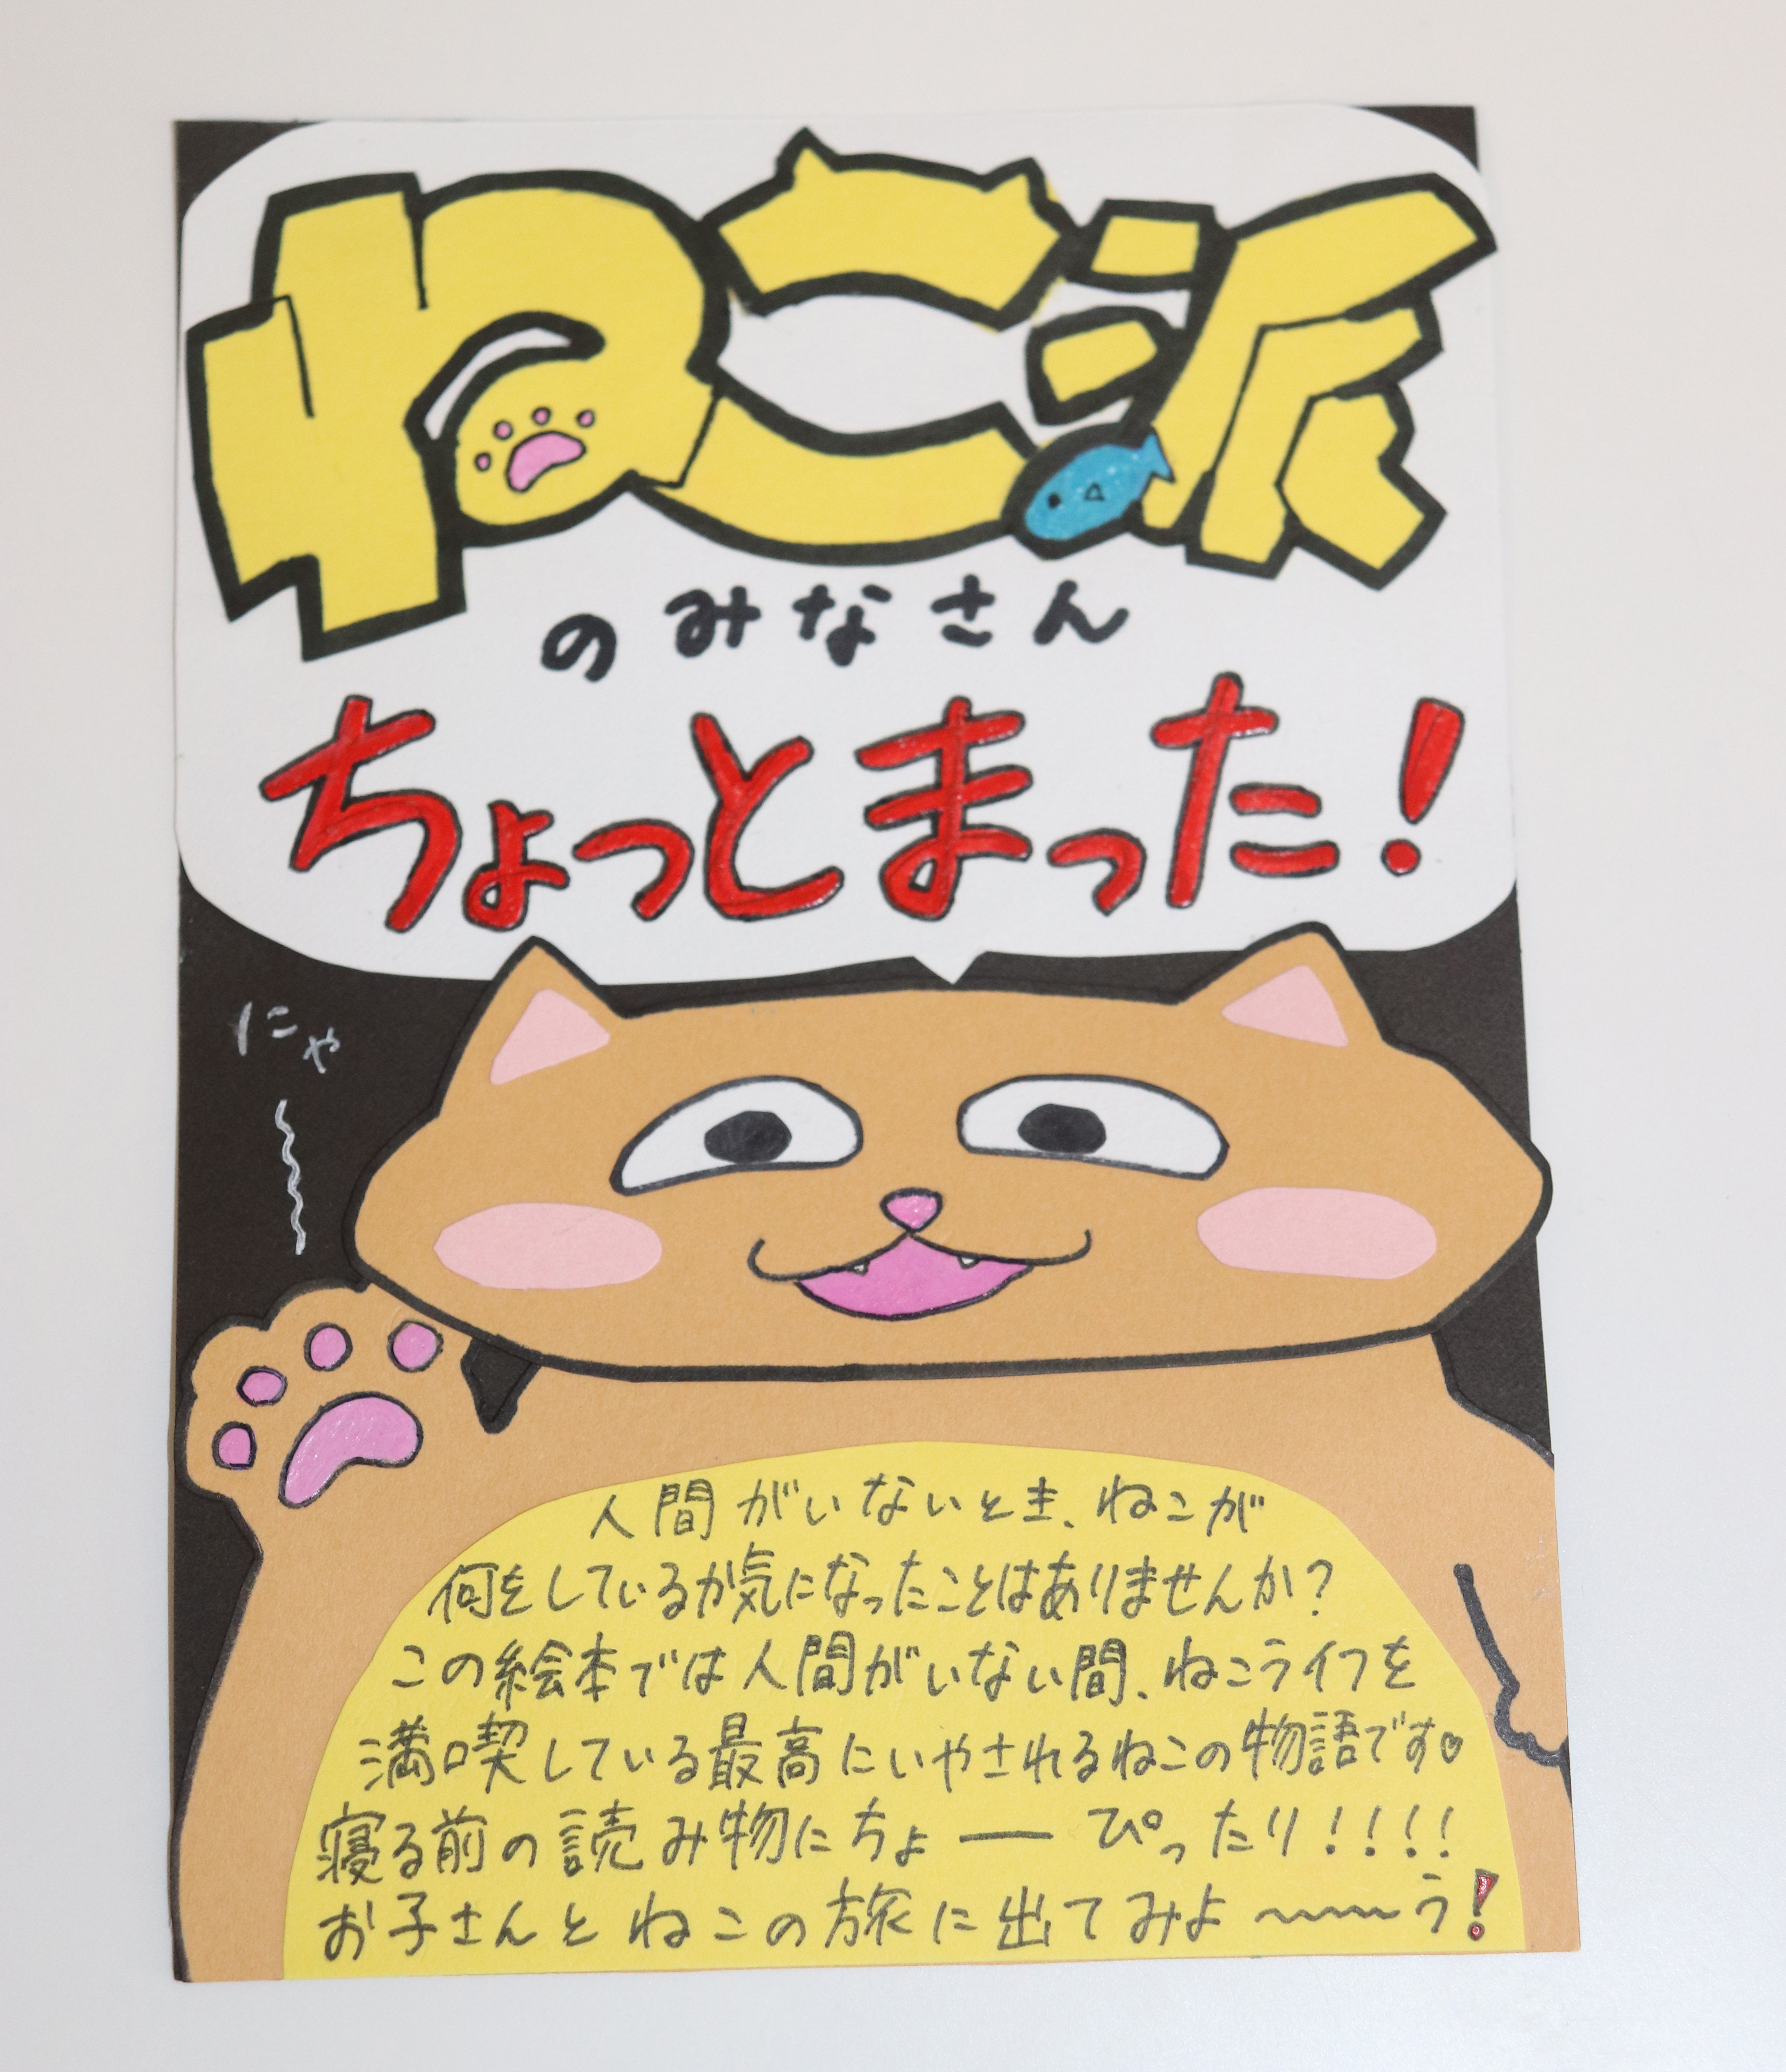 ねこ派
のみなさん
ちょっとまった!
にゃ〜
人間がいないとき、ねこが
何をしているか気になったことはありませんか?
この絵本では人間がいない間、ねこライフを
満喫している最高にいやされるねこの物語です♡
寝る前の読み物にちょーぴったり!!!!
お子さんとねこの旅に出てみよ〜う!